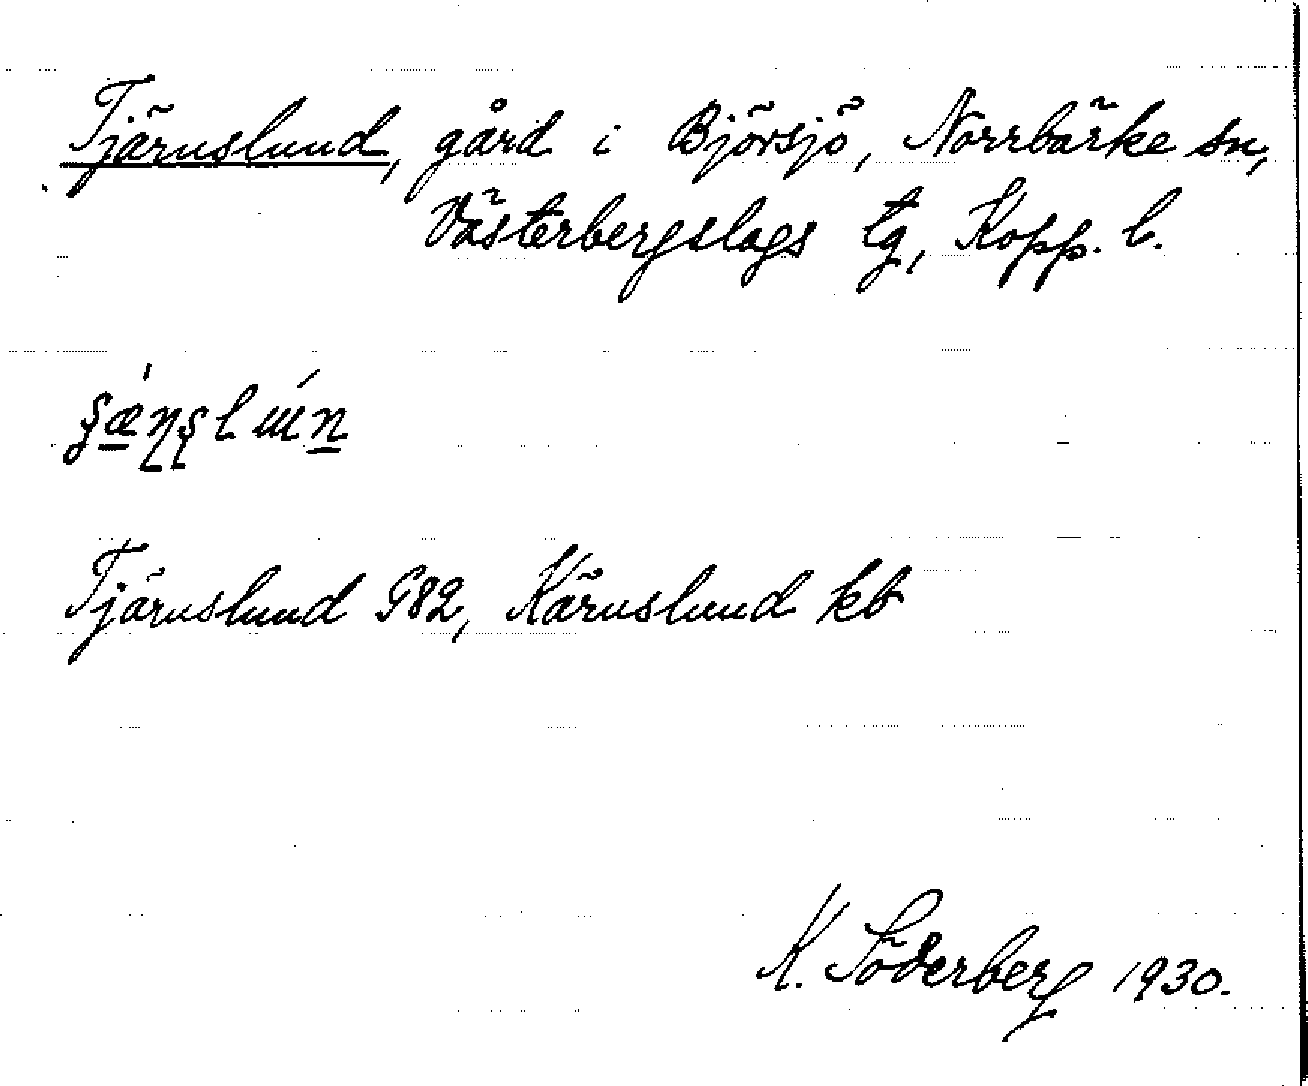 Tjärnslund, gård i Björsjö, Norrbärke sn,
Västerbergslags tg, Kopp. l.
Tjärnslund G82, Kärnslund kb
K. Söderberg 1930.